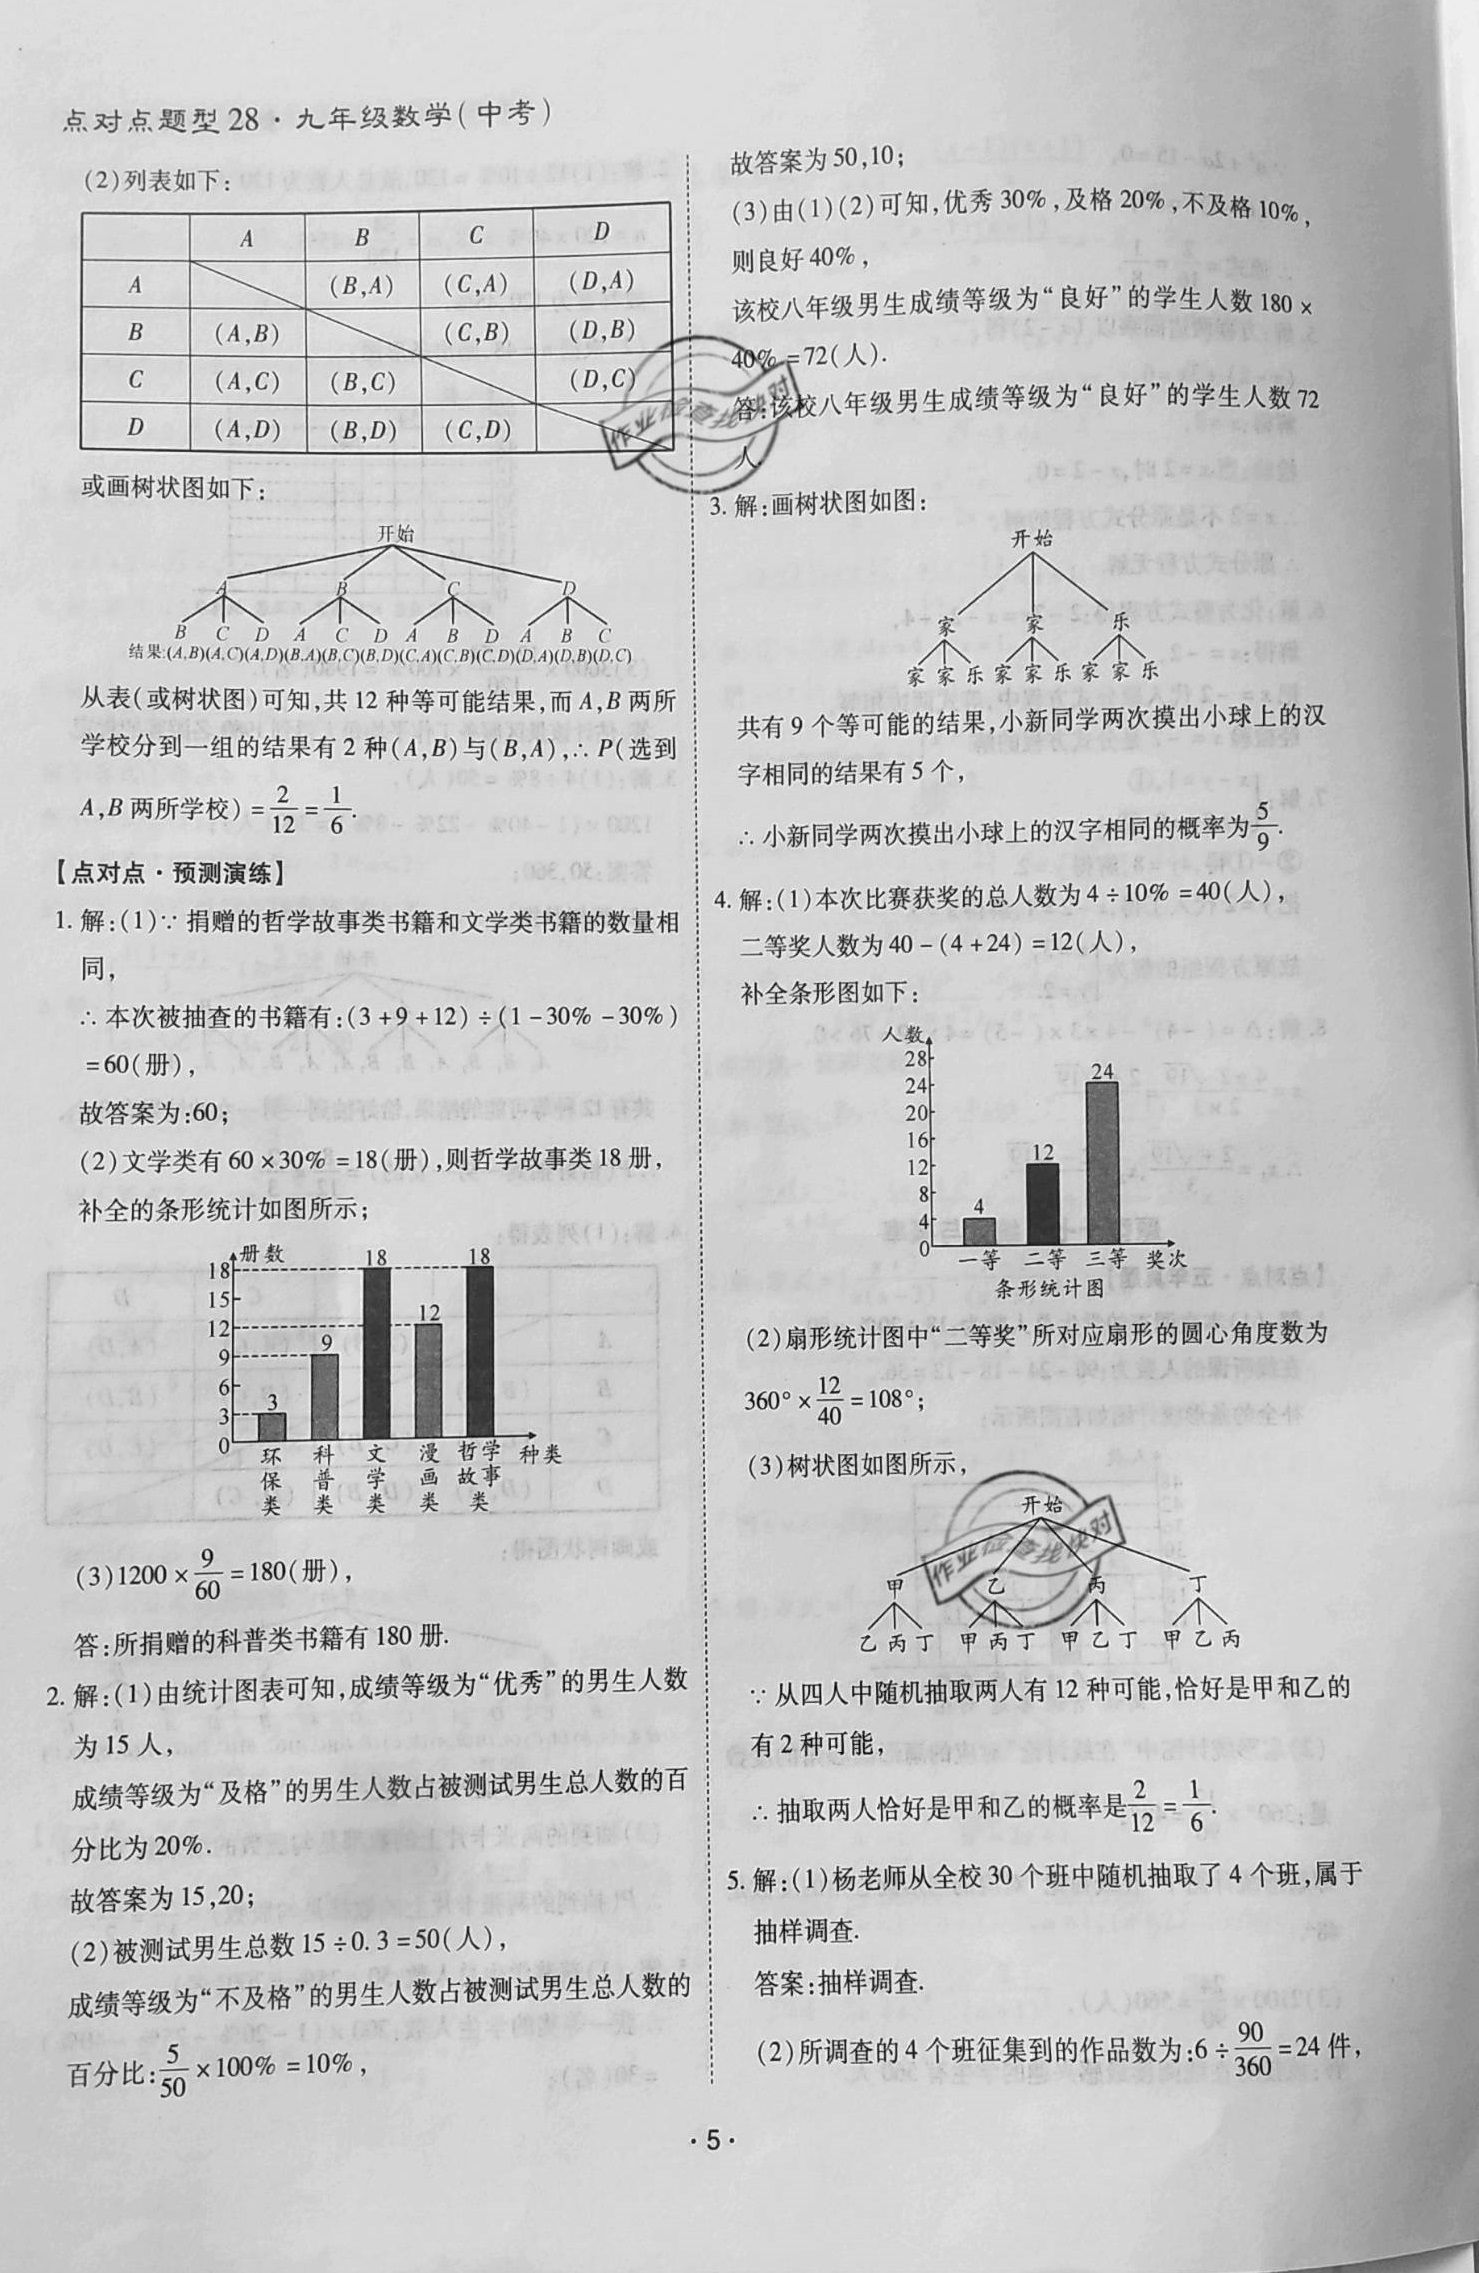 点对点题型28·九年级数学(中考)
(2)列表如下:
A B C D
A (B,A) (C,A) (D,A)
B (A,B) (C,B) (D,B)
C (A,C) (B,C) (D,C)
D (A,D) (B,D) (C,D)
或画树状图如下:
开始
A B C D
B C D A C D A B D A B C
结果:(A,B)(A,C)(A,D)(B,A)(B,C)(B,D)(C,A)(C,B)(C,D)(D,A)(D,B)(D,C)
从表(或树状图)可知,共12种等可能结果,而A,B两所
学校分到一组的结果有2种(A,B)与(B,A),∴P(选到
A,B两所学校)=2/12=1/6.
【点对点·预测演练】
1.解:(1)∵捐赠的哲学故事类书籍和文学类书籍的数量相
同,
∴本次被抽查的书籍有:(3+9+12)÷(1-30%-30%)
=60(册),
故答案为:60;
(2)文学类有60×30%=18(册),则哲学故事类18册,
补全的条形统计如图所示;
册数
18
15
12
9
6
3
0
3 9 18 12 18
环保类 科普类 文学类 漫画类 哲学故事类 种类
(3)1200×9/60=180(册),
答:所捐赠的科普类书籍有180册.
2.解:(1)由统计图表可知,成绩等级为“优秀”的男生人数
为15人,
成绩等级为“及格”的男生人数占被测试男生总人数的百
分比为20%.
故答案为15,20;
(2)被测试男生总数15÷0.3=50(人),
成绩等级为“不及格”的男生人数占被测试男生总人数的
百分比:5/50×100%=10%,
故答案为50,10;
(3)由(1)(2)可知,优秀30%,及格20%,不及格10%,
则良好40%,
该校八年级男生成绩等级为“良好”的学生人数180×
40%=72(人).
答:该校八年级男生成绩等级为“良好”的学生人数72
人.
3.解:画树状图如图:
开始
家 家 乐
家 家 乐 家 家 乐 家 家 乐
共有9个等可能的结果,小新同学两次摸出小球上的汉
字相同的结果有5个,
∴小新同学两次摸出小球上的汉字相同的概率为5/9.
4.解:(1)本次比赛获奖的总人数为4÷10%=40(人),
二等奖人数为40-(4+24)=12(人),
补全条形图如下:
人数
28
24
20
16
12
8
4
0
4 12 24
一等 二等 三等 奖次
条形统计图
(2)扇形统计图中“二等奖”所对应扇形的圆心角度数为
360°×12/40=108°;
(3)树状图如图所示,
开始
甲 乙 丙 丁
乙丙丁 甲丙丁 甲乙丁 甲乙丙
∵从四人中随机抽取两人有12种可能,恰好是甲和乙的
有2种可能,
∴抽取两人恰好是甲和乙的概率是2/12=1/6.
5.解:(1)杨老师从全校30个班中随机抽取了4个班,属于
抽样调查.
答案:抽样调查.
(2)所调查的4个班征集到的作品数为:6÷90/360=24件,
·5·
作业检查找快对
作业检查找快对